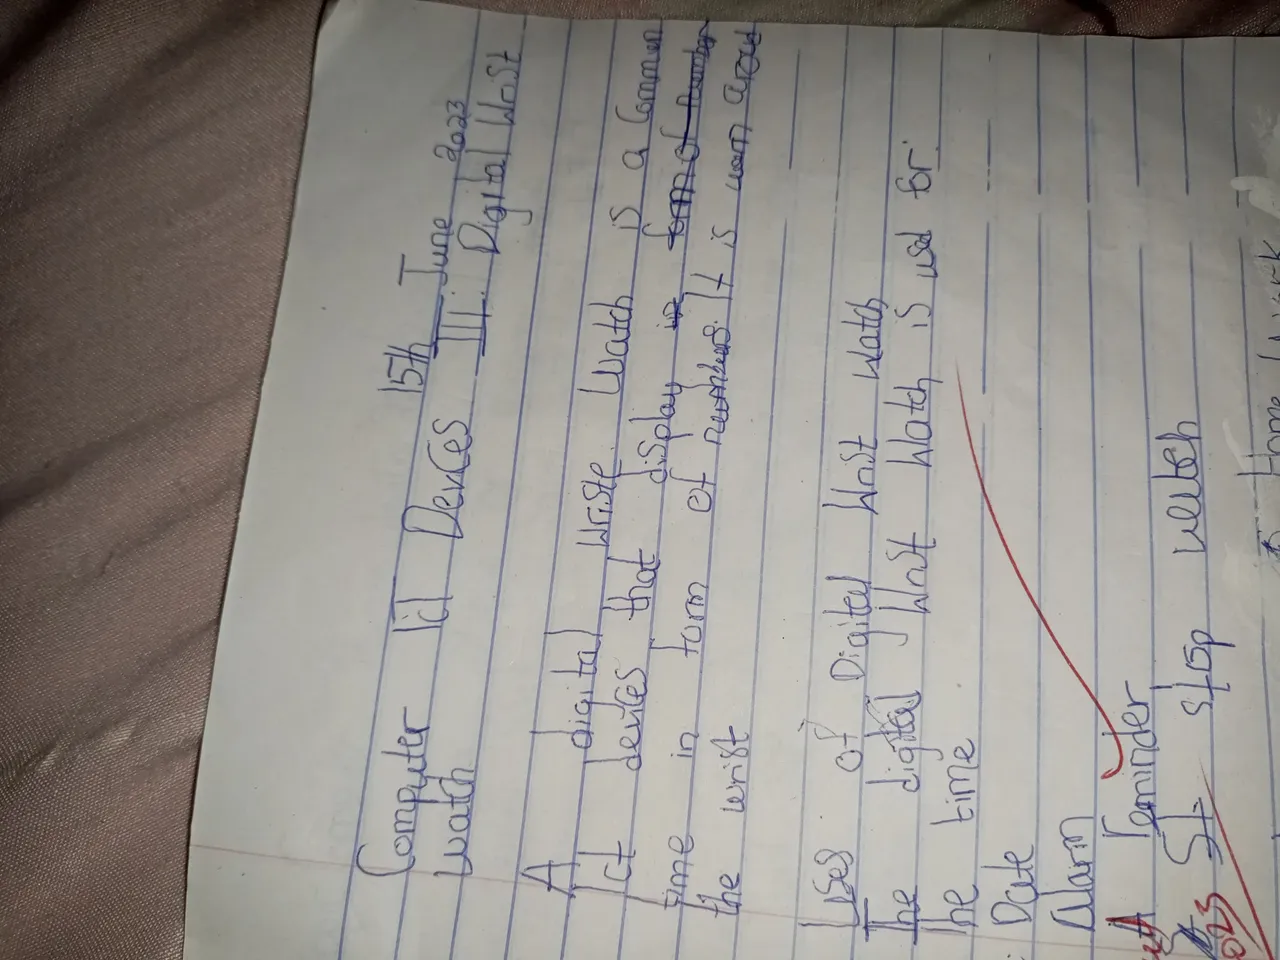 15th June 2023
Computer Ict Devices III. Digital Wrist
Watch
A digital Wriste Watch is a Common
Ict devices that display in form of number
time in form of numbers. It is worn aroud
the wrist
Uses of Digital Wrist Watch
The digital Wrist Watch is used for.
The time
Date
Alarm
reminder
St stop watch
Home Work